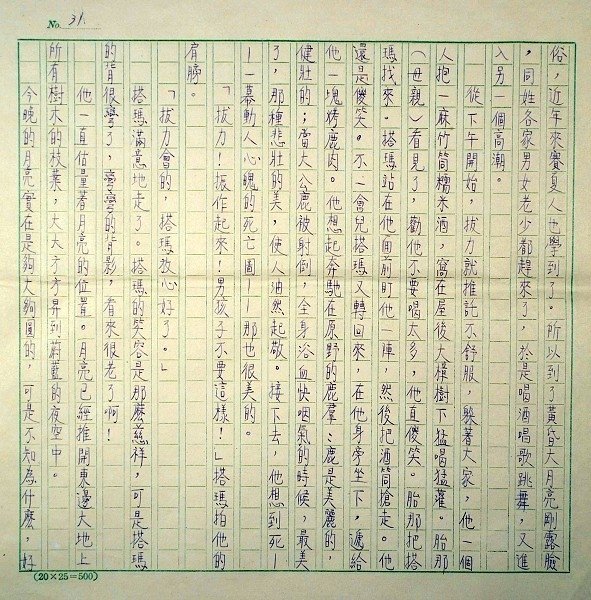 No. 31.
俗，近年來賽夏人也學到了。所以到了黃昏大月亮剛露臉
，同姓各家男女老少都趕來了，於是喝酒唱歌跳舞，又進
入另一個高潮。
從下午開始，拔力就推託不舒服，躲著大家，他一個
人抱一麻竹筒糯米酒，窩在屋後大樟樹下猛喝猛灌。胎那
（母親）看見了，勸他不要喝太多，他直傻笑。胎那把搭
瑪找來。搭瑪站在他面前盯他一陣，然後把酒筒搶走。他
還是傻笑。不一會兒搭瑪又轉回來，在他身旁坐下，遞給
他一塊烤鹿肉。他想起奔馳在原野的鹿群：鹿是美麗的，
健壯的；雷大公鹿被射倒，全身浴血快咽氣的時候，最美
了，那種悲壯的美，使人油然起敬。接下去，他想到死—
—一幕動人心魄的死亡圖——那也很美的。
「拔力！振作起來！男孩子不要這樣！」搭瑪拍他的
肩膀。
「拔力會的，搭瑪放心好了。」
搭瑪滿意地走了。搭瑪的笑容是那麼慈祥，可是搭瑪
的背很彎了，彎彎的背影，看來很老了啊！
他一直估量著月亮的位置。月亮已經推開東邊大地上
所有樹木的枝葉，大大方方昇到蔚藍的夜空中。
今晚的月亮實在是夠大夠圓的，可是不知為什麼，好
(20×25=500)